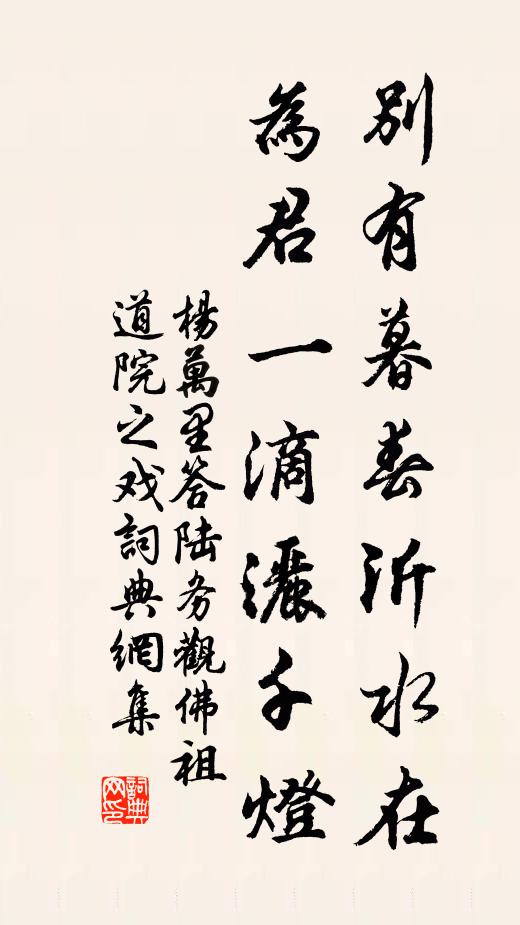 別有暮春沂水在
為君一滴灑千燈
楊萬里答陆务觀佛祖
道院之戏詞典網集
詞典
网印